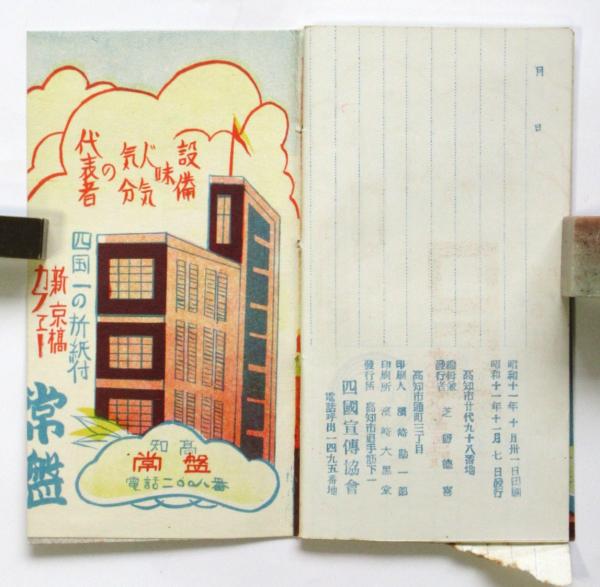 設備
味
人気
気分
の
代表者
四国一の折紙付
新京橋
カフェー
常盤
高知
常盤
電話二〇八番
月 日
昭和十一年十月卅一日印刷
昭和十一年十一月七日発行
高知市廿代九十八番地
編輯兼
発行者 芝 野 徳 喜
高知市通町三丁目
印刷人 濱 﨑 勘 一 郎
印刷所 濱 﨑 大 黒 堂
發行所 高知市追手筋下一
四國宣傳協會
電話呼出一四九五番地